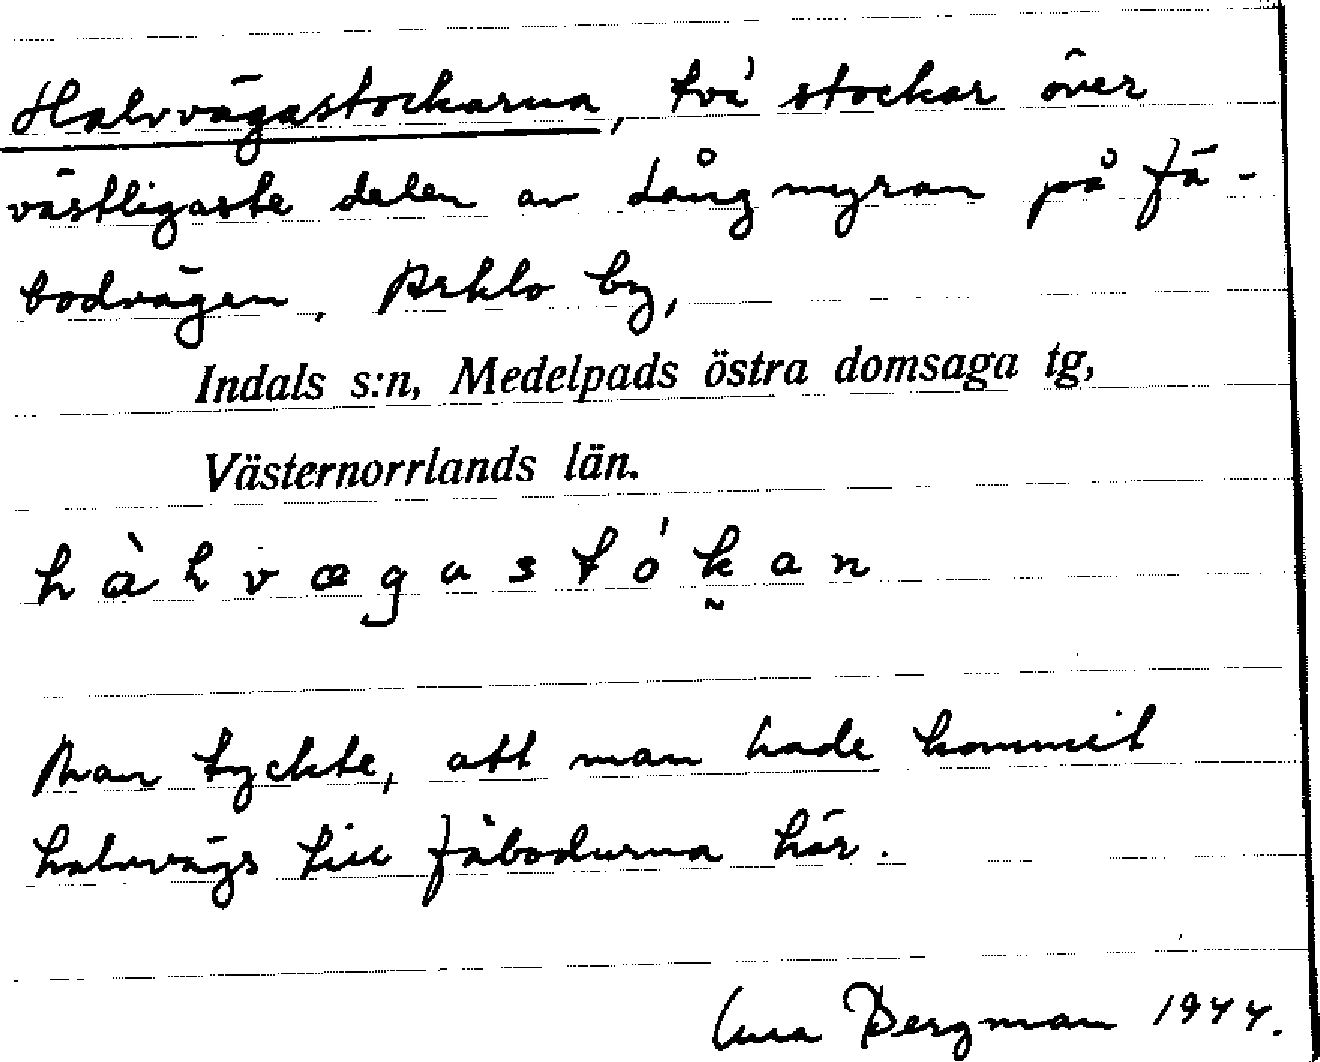 Halvvägastockarna, två stockar över
västligaste delen av Långmyran på fä-
bodvägen. Arklo by,
Indals s:n, Medelpads östra domsaga tg,
Västernorrlands län.
hàlvægastókan
Man tyckte, att man hade kommit
halvvägs till fäbodurna här.
Bergman 1944.